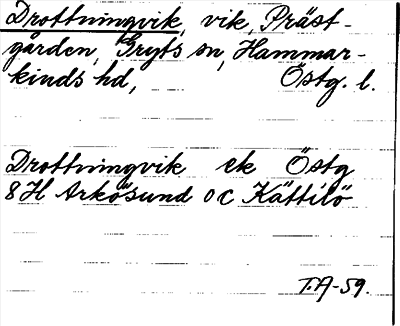 Drottningvik, vik, Präst-
gården, Gryts sn, Hammar-
kinds hd, Östg. l.
Drottningvik ek Östg
8H Arkösund o C Kättilö
T.A-59.